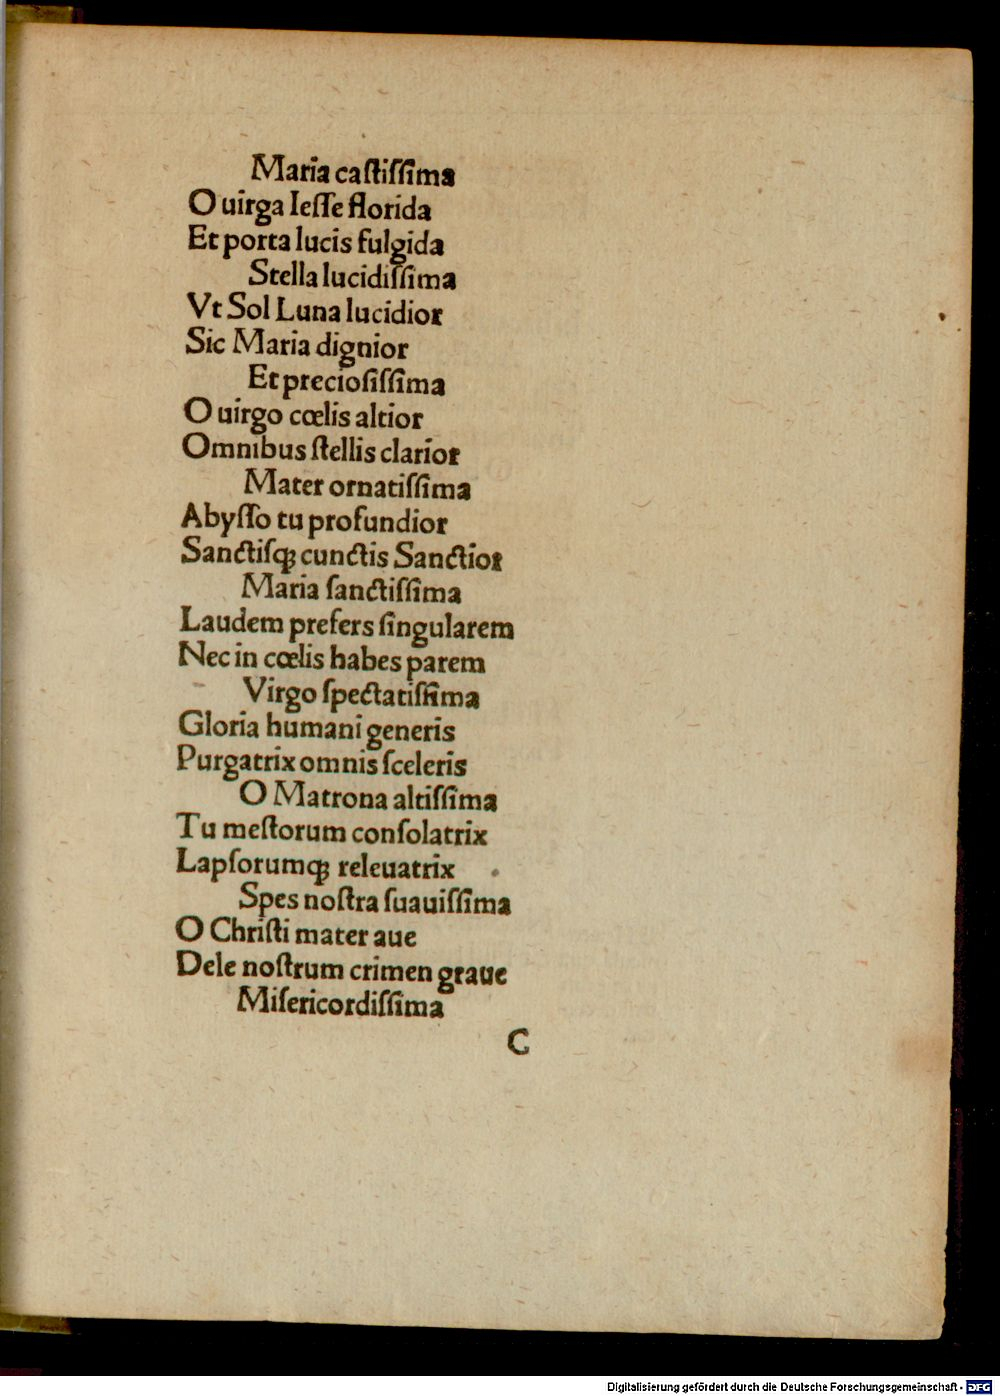 Maria caſtiſſima
O uirga Ieſſe florida
Et porta lucis fulgida
Stella lucidiſſima
Vt Sol Luna lucidior
Sic Maria dignior
Et precioſiſſima
O uirgo cœlis altior
Omnibus ſtellis clarior
Mater ornatiſſima
Abyſſo tu profundior
Sanctiſqꝫ cunctis Sanctior
Maria ſanctiſſima
Laudem prefers ſingularem
Nec in cœlis habes parem
Virgo ſpectatiſſima
Gloria humani generis
Purgatrix omnis ſceleris
O Matrona altiſſima
Tu meſtorum conſolatrix
Lapſorumqꝫ releuatrix
Spes noſtra ſuauiſſima
O Chriſti mater aue
Dele noſtrum crimen graue
Miſericordiſſima
C
Digitalisierung gefördert durch die Deutsche Forschungsgemeinschaft - DFG